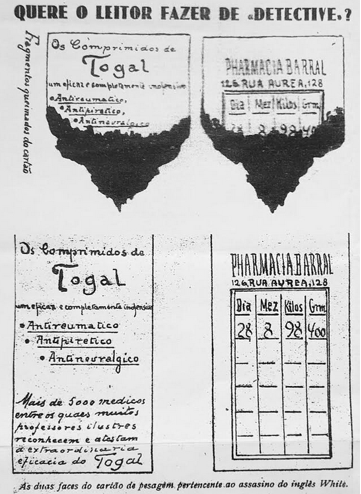 QUERE O LEITOR FAZER DE «DETECTIVE»?
Fragmentos queimados do cartão
Os Comprimidos de
Togal
um eficaz e completamente inofensivo
• Antireumatico,
• Antipiretico,
• Antinevralgico
PHARMACIA BARRAL
126, RUA AUREA, 128
Dia Mez Kilos Grm
28 8 98 400
Os Comprimidos de
Togal
um eficaz e completamente inofensivo
• Antireumatico
• Antipiretico
• Antinevralgico
Mais de 5000 medicos
entre os quaes muitos
professores ilustres
reconhecem e atestam
a extraordinaria
eficacia do Togal
PHARMACIA BARRAL
126, RUA AUREA, 128
Dia Mez Kilos Grm
28 8 98 400
As duas faces do cartão de pesagem pertencente ao assasino do inglês White.